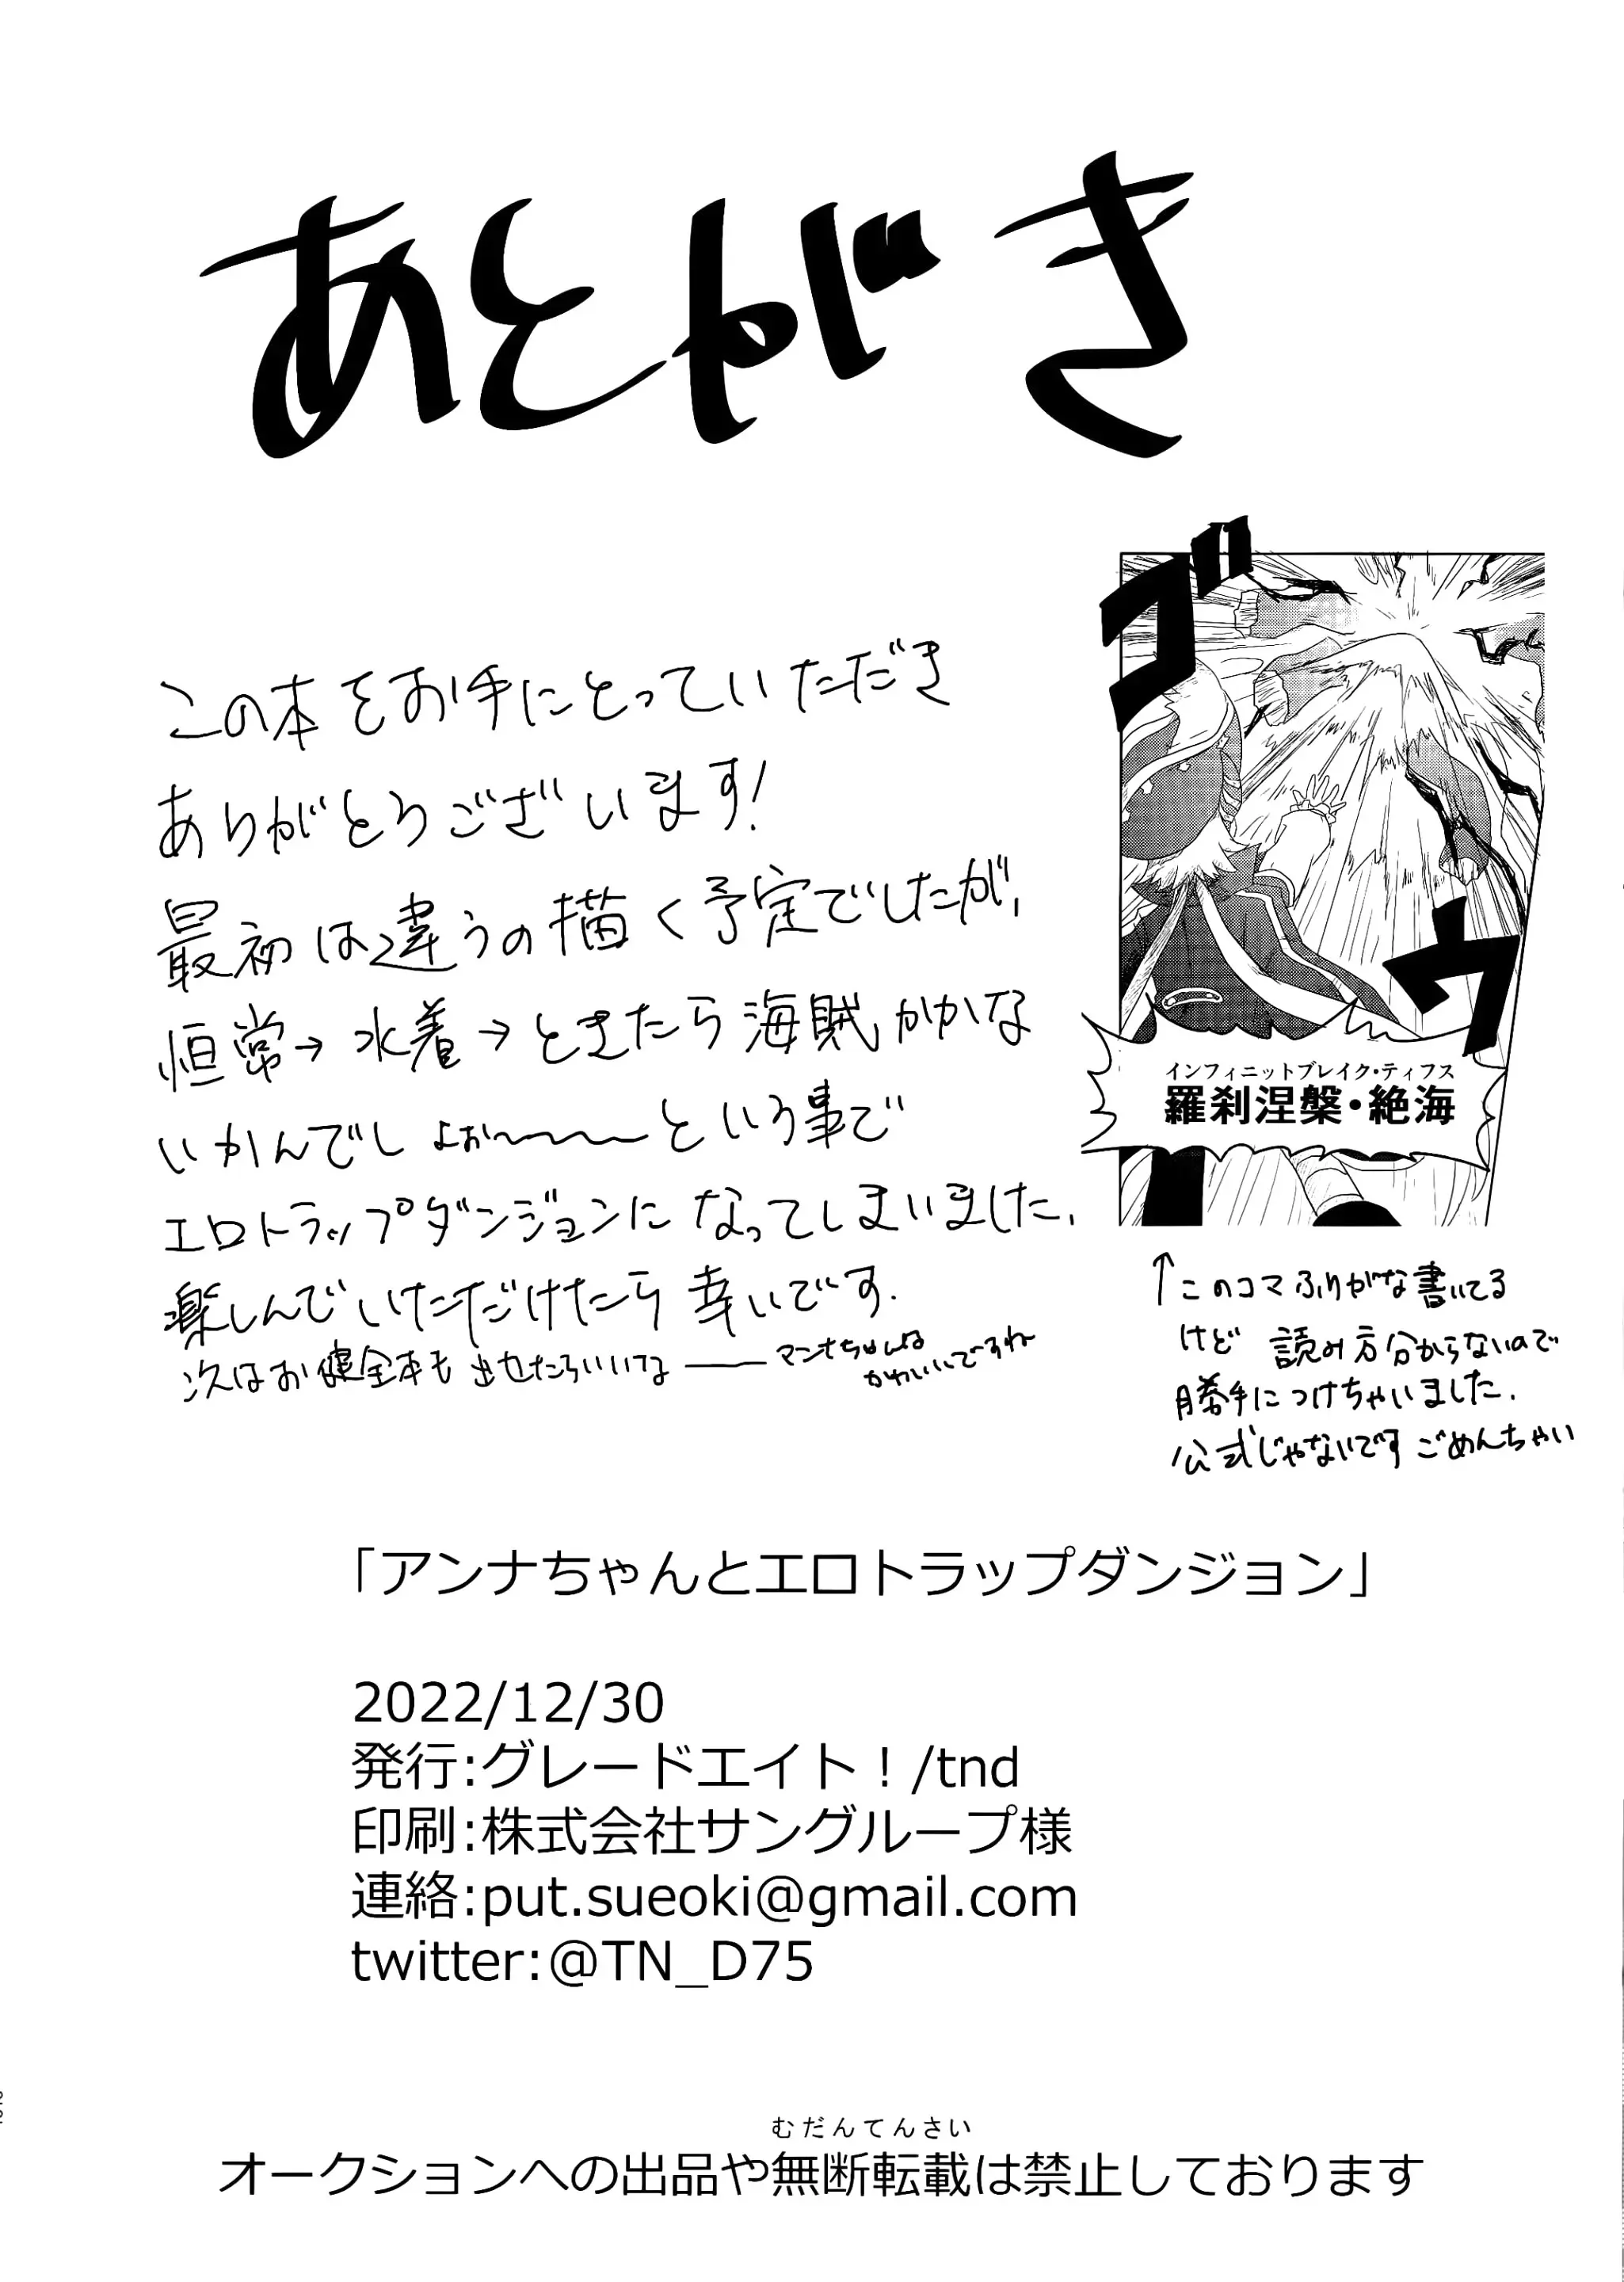 あとがき
この本をお手にとっていただき
ありがとうございます!
最初は違うの描く予定でしたが、
恒常→水着→ときたら海賊かかな
いかんでしょぉ〜〜〜という事で
エロトラップダンジョンになってしまいました.
楽しんでいただけたら幸いです.
次はお健全本も出せたらいいな
かわいいですね
ゴ
ウ
インフィニットブレイク・ティフス
羅刹涅槃・絶海
↑このコマふりがな書いてる
けど 読み方分からないので
勝手につけちゃいました.
公式じゃないです ごめんちゃい
「アンナちゃんとエロトラップダンジョン」
2022/12/30
発行:グレードエイト！/tnd
印刷:株式会社サングループ様
連絡:put.sueoki@gmail.com
twitter:@TN_D75
むだんてんさい
オークションへの出品や無断転載は禁止しております